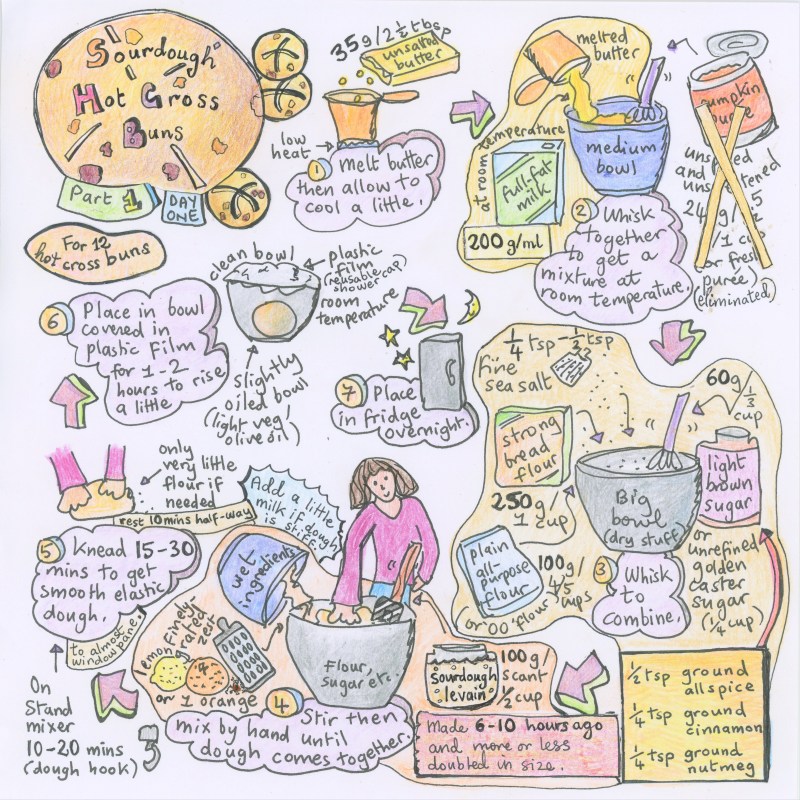 Sourdough
Hot Cross
Buns
Part 1
DAY
ONE
For 12
hot cross buns
35g/2½ tbsp
unsalted
butter
low
heat
1 melt butter
then allow to
cool a little.
melted
butter
medium
bowl
at room temperature
full-fat
milk
200 g/ml
pumpkin
and
24 g/
/1 cup
or fresh
purée)
(eliminated)
2 Whisk
together
to get a
mixture at
room temperature.
¼ tsp - ⅓ tsp
fine
sea salt
60g/
⅓
cup
strong
bread
flour
250g/
1 cup
Big
bowl
(dry stuff)
light
brown
sugar
plain
all-
purpose
flour
or '00' flour
100g/
⅘
cups
or
unrefined
golden
caster
sugar
(¼ cup)
3 Whisk
to
combine.
½ tsp ground
allspice
¼ tsp ground
cinnamon
¼ tsp ground
nutmeg
sourdough
levain
100g/
scant
½ cup
Made 6-10 hours ago
and more or less
doubled in size.
wet
ingredients
Add a little
milk if dough
is stiff
finely-
grated
zest
lemon
or 1 orange
Flour,
sugar etc.
4 Stir then
mix by hand until
dough comes together.
only
very little
flour if
needed
rest 10mins half-way
5 Knead 15-30
mins to get
smooth elastic
dough.
to almost
windowpane.
On
Stand
mixer
10-20 mins
(dough hook)
clean bowl
plastic
film
(reusable
shower cap)
room
temperature
slightly
oiled bowl
(light veg/
olive oil)
6 Place in bowl
covered in
plastic film
for 1-2
hours to rise
a little
7 Place
in fridge
overnight.